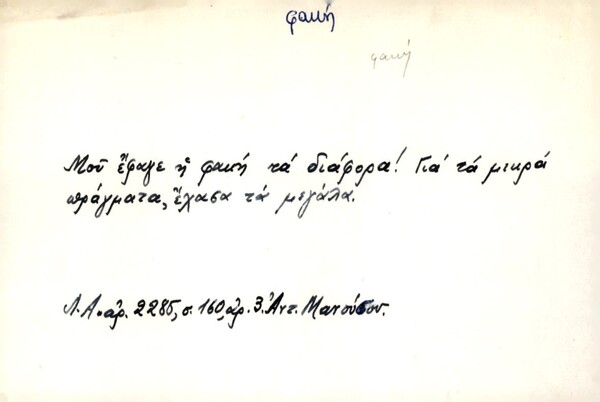 φακή
φακή
Μοῦ ἔφαγε ἡ φακή τά διάφορα! Γιά τά μικρά
πράγματα, ἔχασα τά μεγάλα.
Λ.Α. ἀρ. 2285, σ. 160, ἀρ. 3. Ἀντ. Μανούσου.